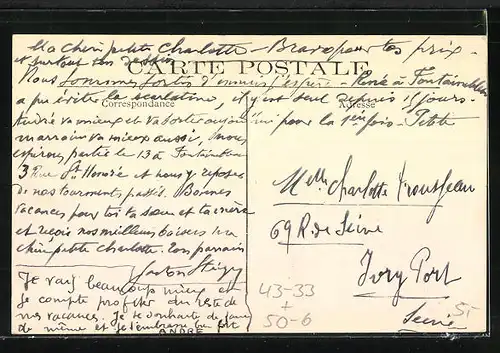 Ma chère petite Charlotte - Bravo pour tes prix -
et surtout ton dessin
CARTE POSTALE
Nous sommes sortis d'ennuis j'espère - René à Fontainebleau
a pu éviter la scarlatine, il y est seul depuis 15 jours.
Correspondance
Adresse
André va mieux et va sortir aujourd'hui pour la 1ère fois - Petite
marraine va mieux aussi, nous
espérons partir le 13 à Fontainebleau
3 Rue St Honoré et nous y reposer
de nos tourments passés. Bonnes
vacances pour toi ta sœur et ta mère
et reçois nos meilleurs baisers ma
chère petite Charlotte. Ton parrain
Gaston
Je vais beaucoup mieux et
je compte profiter du reste de
mes vacances. Je te souhaite de faire
de même et je t'embrasse bien fort
ANDRÉ
Melle Charlotte Trousseau
69 R. de Seine
Ivry Port
Seine
43-33
+
50-6
5-